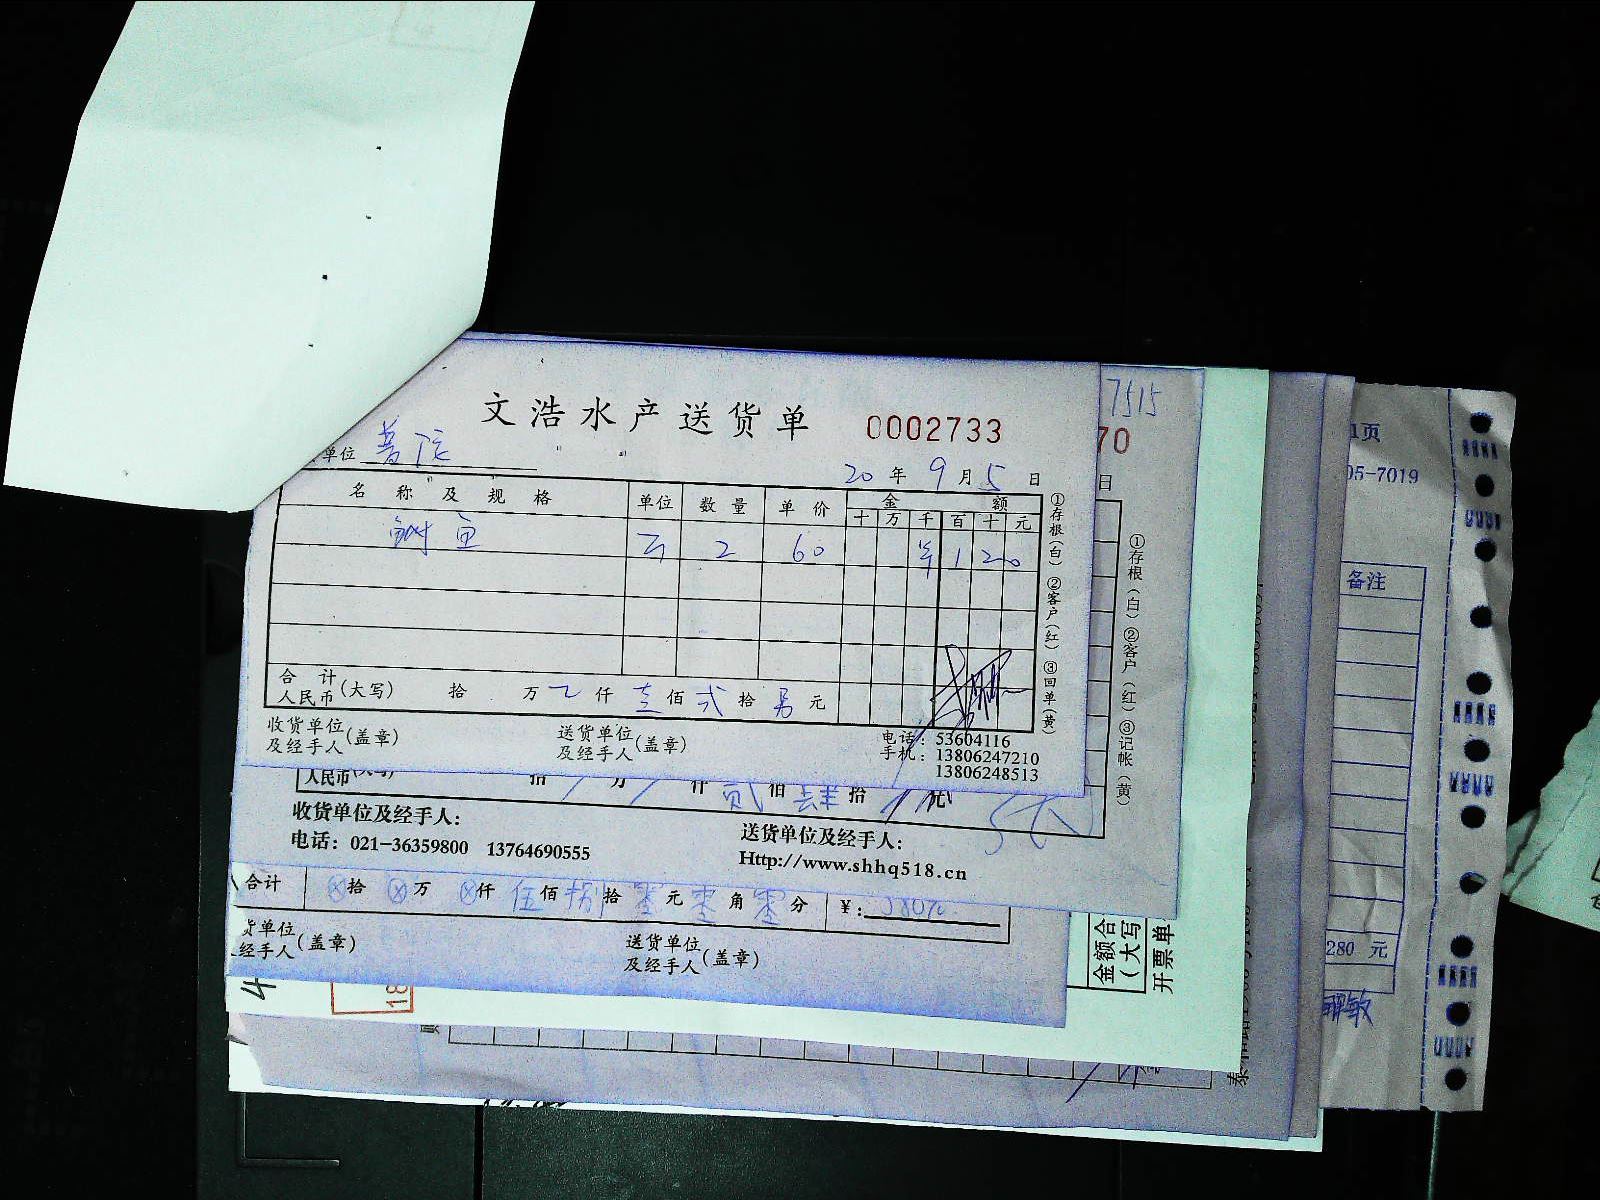 文浩水产送货单 0002733
单位
20 年 9 月 5 日
名称及规格 单位 数量 单价 金额
十 万 千 百 十 元
鱼 2 60 1 2 0
合计
人民币(大写) 拾 万 仟 壹 佰 贰 拾 元
收货单位
及经手人(盖章)
送货单位
及经手人(盖章)
电话:53604116
手机:13806247210
13806248513
①存根(白) ②客户(红) ③回单(黄)
7515
70
日
①存根(白) ②客户(红) ③记帐(黄)
人民币(大写) 拾 万 仟 贰 佰 肆 拾 元
收货单位及经手人:
电话: 021-36359800 13764690555
送货单位及经手人:
Http://www.shhq518.cn
合计 拾 万 仟 伍 佰 捌 拾 零 元 零 角 零 分 ¥:
货单位
经手人(盖章)
送货单位
及经手人(盖章)
18
金额合
(大写
开票单
1页
05-7019
备注
280 元